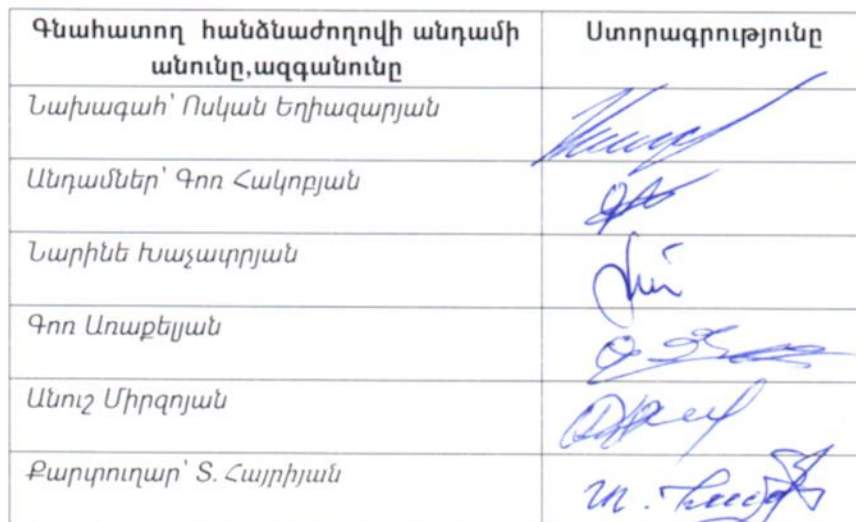 Գնահատող հանձնաժողովի անդամի
անունը,ազգանունը
Ստորագրությունը
Նախագահ՝ Ոսկան Եղիազարյան
Անդամներ՝ Գոռ Հակոբյան
Նարինե Խաչատրյան
Գոռ Առաքելյան
Անուշ Միրզոյան
Քարտուղար՝ Տ. Հայրիյան